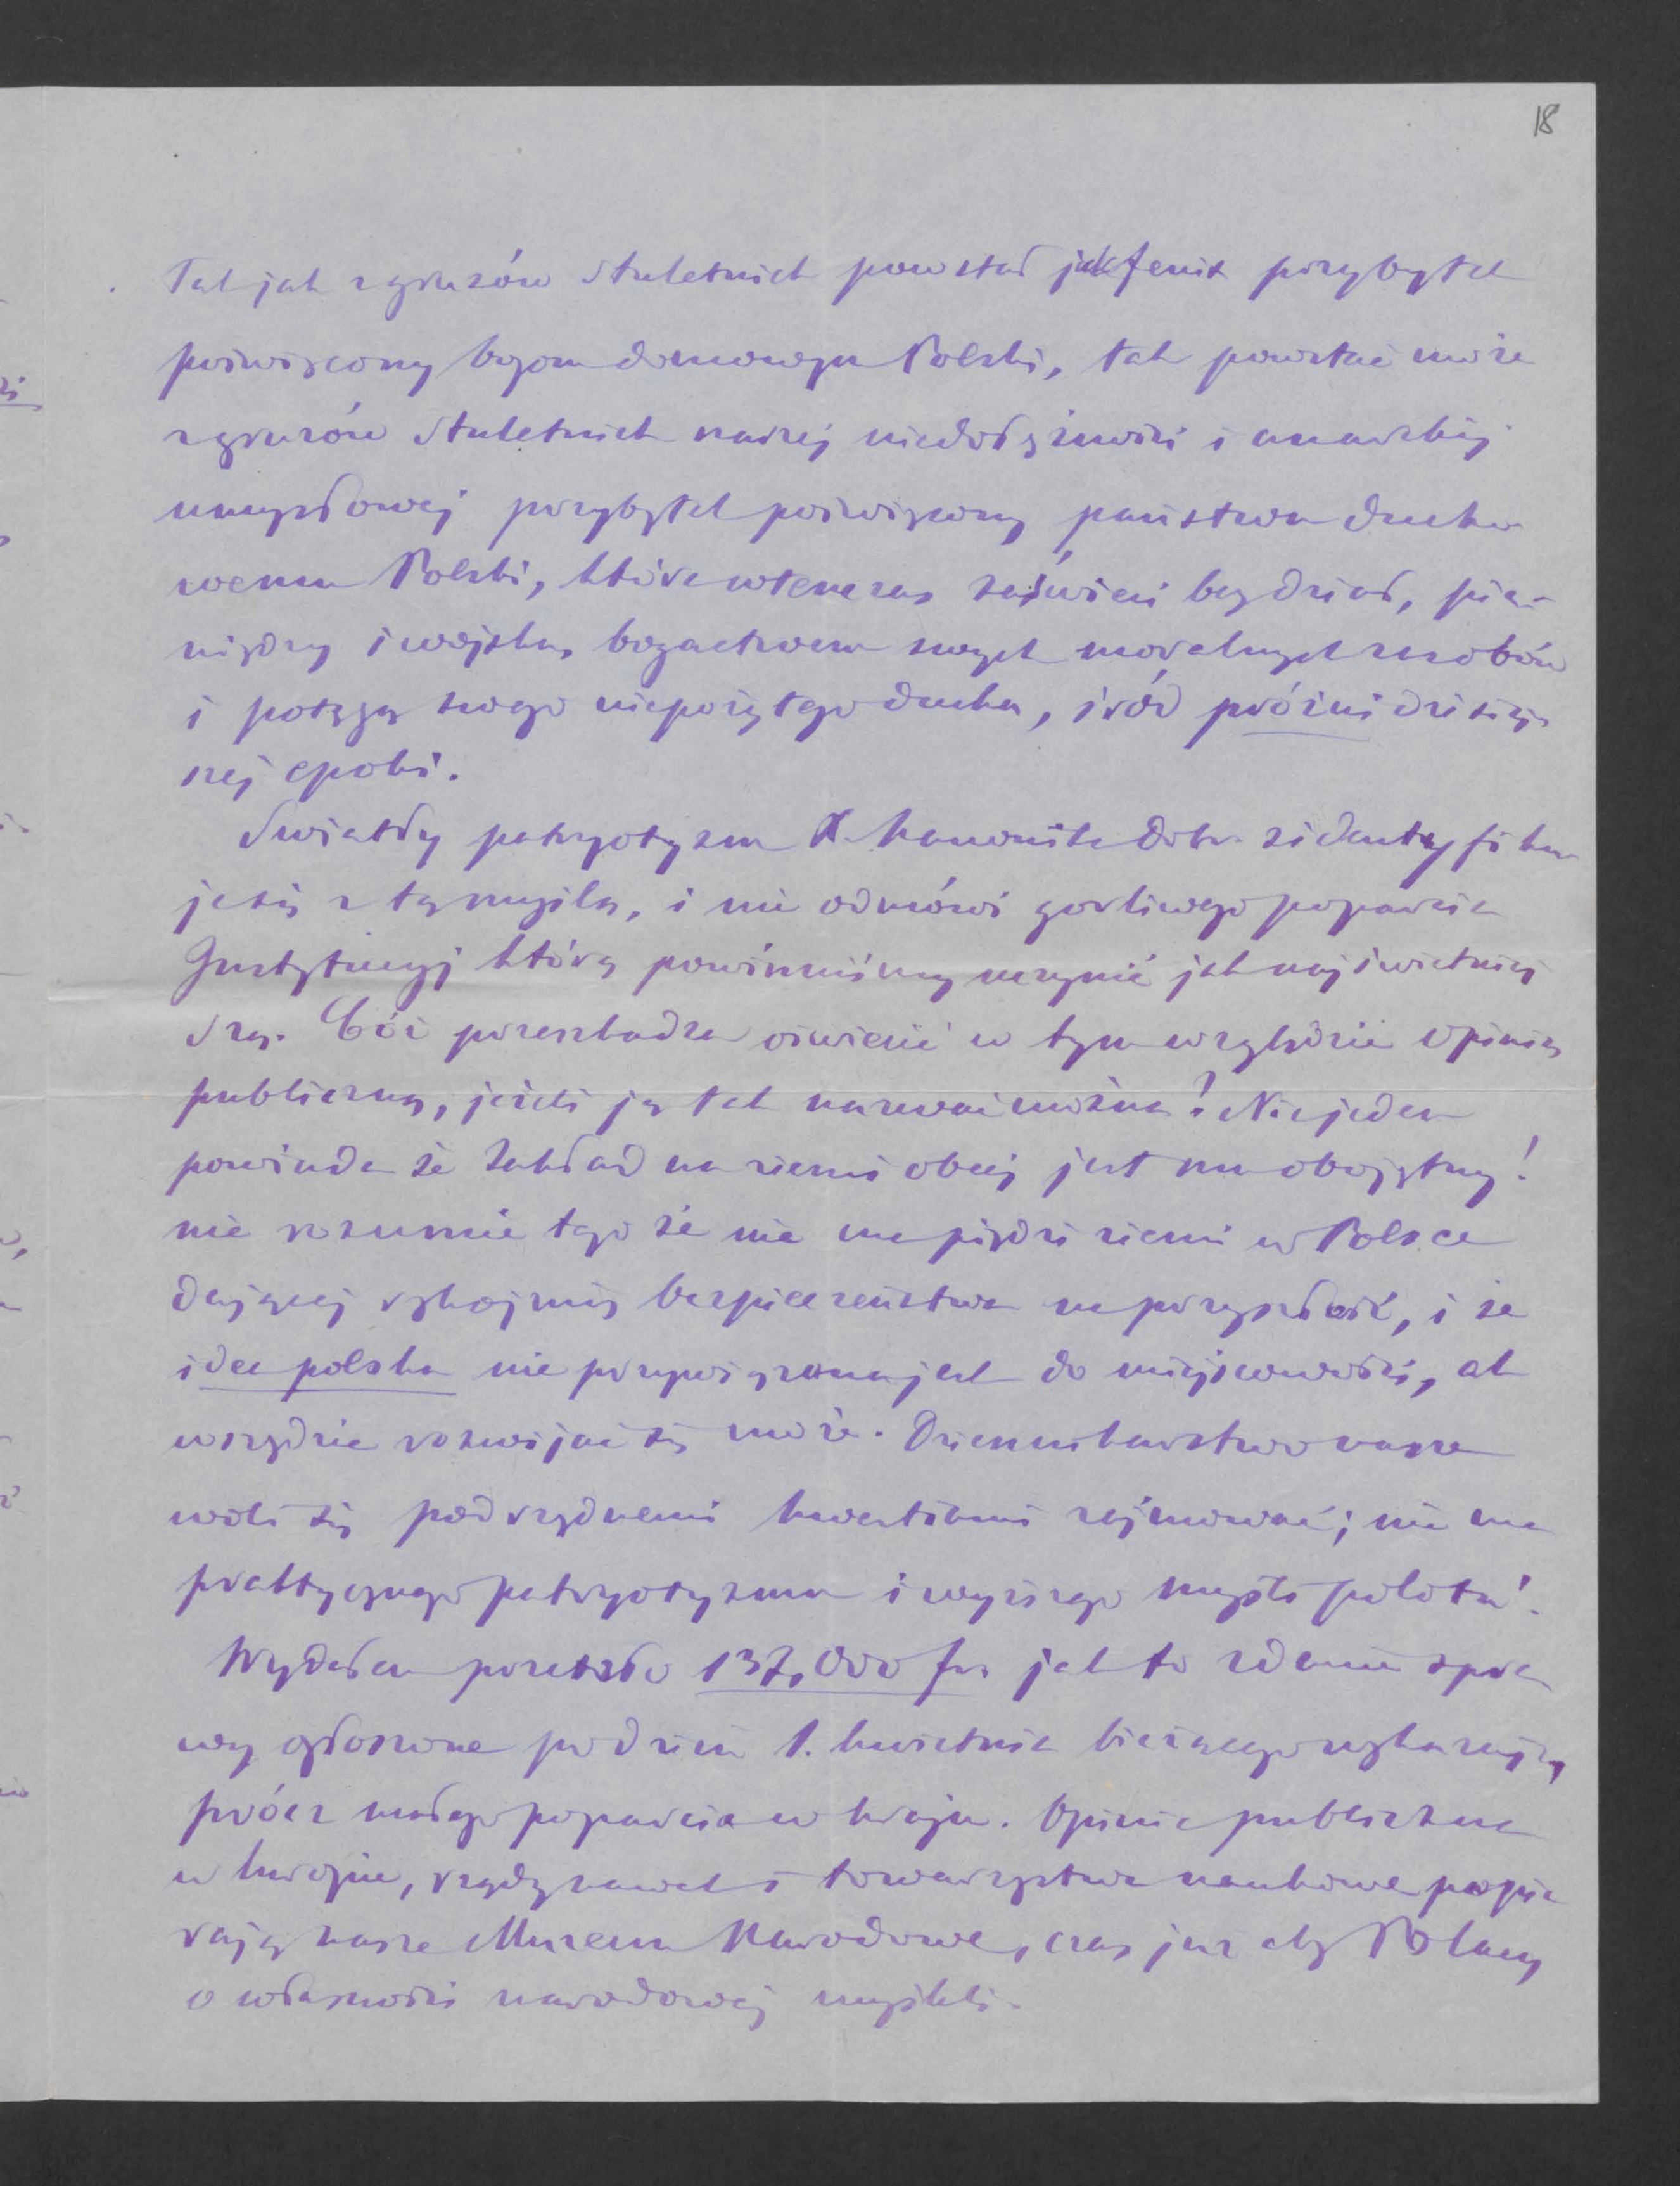 18
Tak jak z gruzów stuletnich powstał jak fenix przybytek
poświęcony bogom domowym Polski, tak powstać może
z gruzów stuletnich naszej niedołężności i anarchij
umysłowej przybytek poświęcony państwu ducho
wemu Polski, które wtenczas zaświeci bez dział, pie-
niędzy i wojska, bogactwem swych moralnych zasobów
i potęgą swego niepożytego ducha, śród próżni dzisiej
szej epoki.
Światły patryotyzm X. Kanonika Dobr. zidentyfiku
je się z tą myślą, i nie odmówi gorliwego poparcia
Instytucyj którą powinniśmy uczynić jak najświetniej
szą. Cóż przeszkadza oświecić w tym względzie opinią
publiczną, jeżeli ją tak nazwać można? Niejeden
powiada że Zakład na ziemi obcej jest mu obojętny!
nie rozumie tego że nie ma piędzi ziemi w Polsce
dającej rękojmią bezpieczeństwa na przyszłość, i że
idea polska nie przywiązana jest do miejscowości, ale
wszędzie rozwijać się może. Dziennikarstwo nasze
woli się podrzędnemi kwestiami zajmować; nie ma
praktycznego patryotyzmu i wyższego myśli polotu!
Wydałem przeszło 137,000 fr. jak to zdanie spra
wy ogłoszone po dzień 1. kwietnia bieżącego wykazuje,
prócz małego poparcia w kraju. Opinia publiczna
w Europie, rządy nawet i towarzystwa naukowe popie
rają nasze Muzeum Narodowe, czas już aby Polacy
o własności narodowej myśleli.